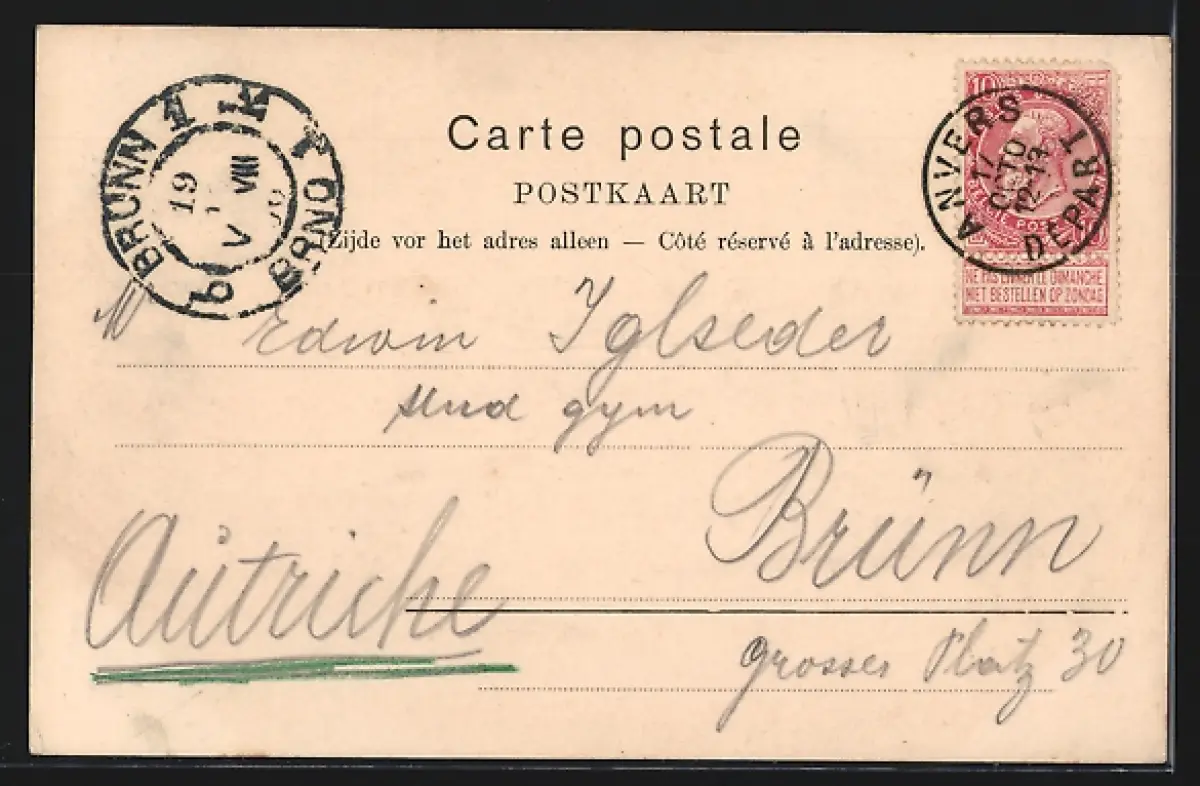 Carte postale
POSTKAART
(Zijde vor het adres alleen — Côté réservé à l'adresse).
BRÜNN 1 BRNO 1
19 VIII
V
b
ANVERS
17 OCTO
12-13
DÉPART
10
NE PAS LIVRER LE DIMANCHE
NIET BESTELLEN OP ZONDAG
Edwin Iglseder
stud gym
Brünn
Autriche
grosser Platz 30